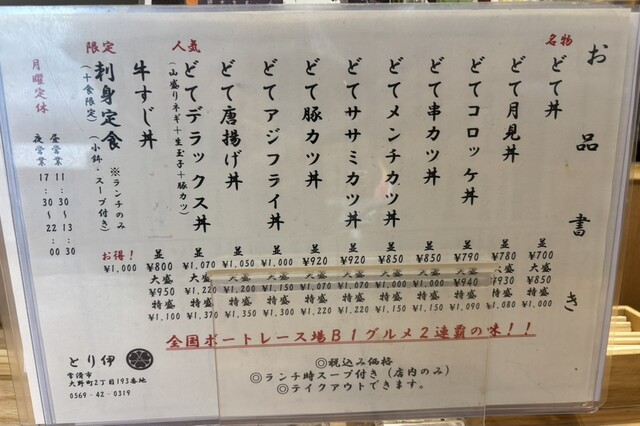 お品書き
名物
どて丼
並 ¥700
大盛 ¥850
特盛 ¥1,000
どて月見丼
並 ¥780
大盛 ¥930
特盛 ¥1,080
どてコロッケ丼
並 ¥790
大盛 ¥940
特盛 ¥1,090
どて串カツ丼
並 ¥850
大盛 ¥1,000
特盛 ¥1,150
どてメンチカツ丼
並 ¥850
大盛 ¥1,000
特盛 ¥1,150
どてササミカツ丼
並 ¥920
大盛 ¥1,070
特盛 ¥1,220
どて豚カツ丼
並 ¥920
大盛 ¥1,070
特盛 ¥1,220
どてアジフライ丼
並 ¥1,000
大盛 ¥1,150
特盛 ¥1,300
どて唐揚げ丼
並 ¥1,050
大盛 ¥1,200
特盛 ¥1,350
人気
どてデラックス丼
(山盛りネギ+生玉子+豚カツ)
並 ¥1,070
大盛 ¥1,220
特盛 ¥1,370
牛すじ丼
並 ¥800
大盛 ¥950
特盛 ¥1,100
限定
刺身定食
※ランチのみ
(小鉢・スープ付き)
(十食限定)
お得!
¥1,000
月曜定休
昼営業 11:30~13:30
夜営業 17:30~22:00
全国ボートレース場B1グルメ2連覇の味!!
◎税込み価格
◎ランチ時スープ付き(店内のみ)
◎テイクアウトできます。
とり伊
常滑市
大野町2丁目193番地
0569-42-0319